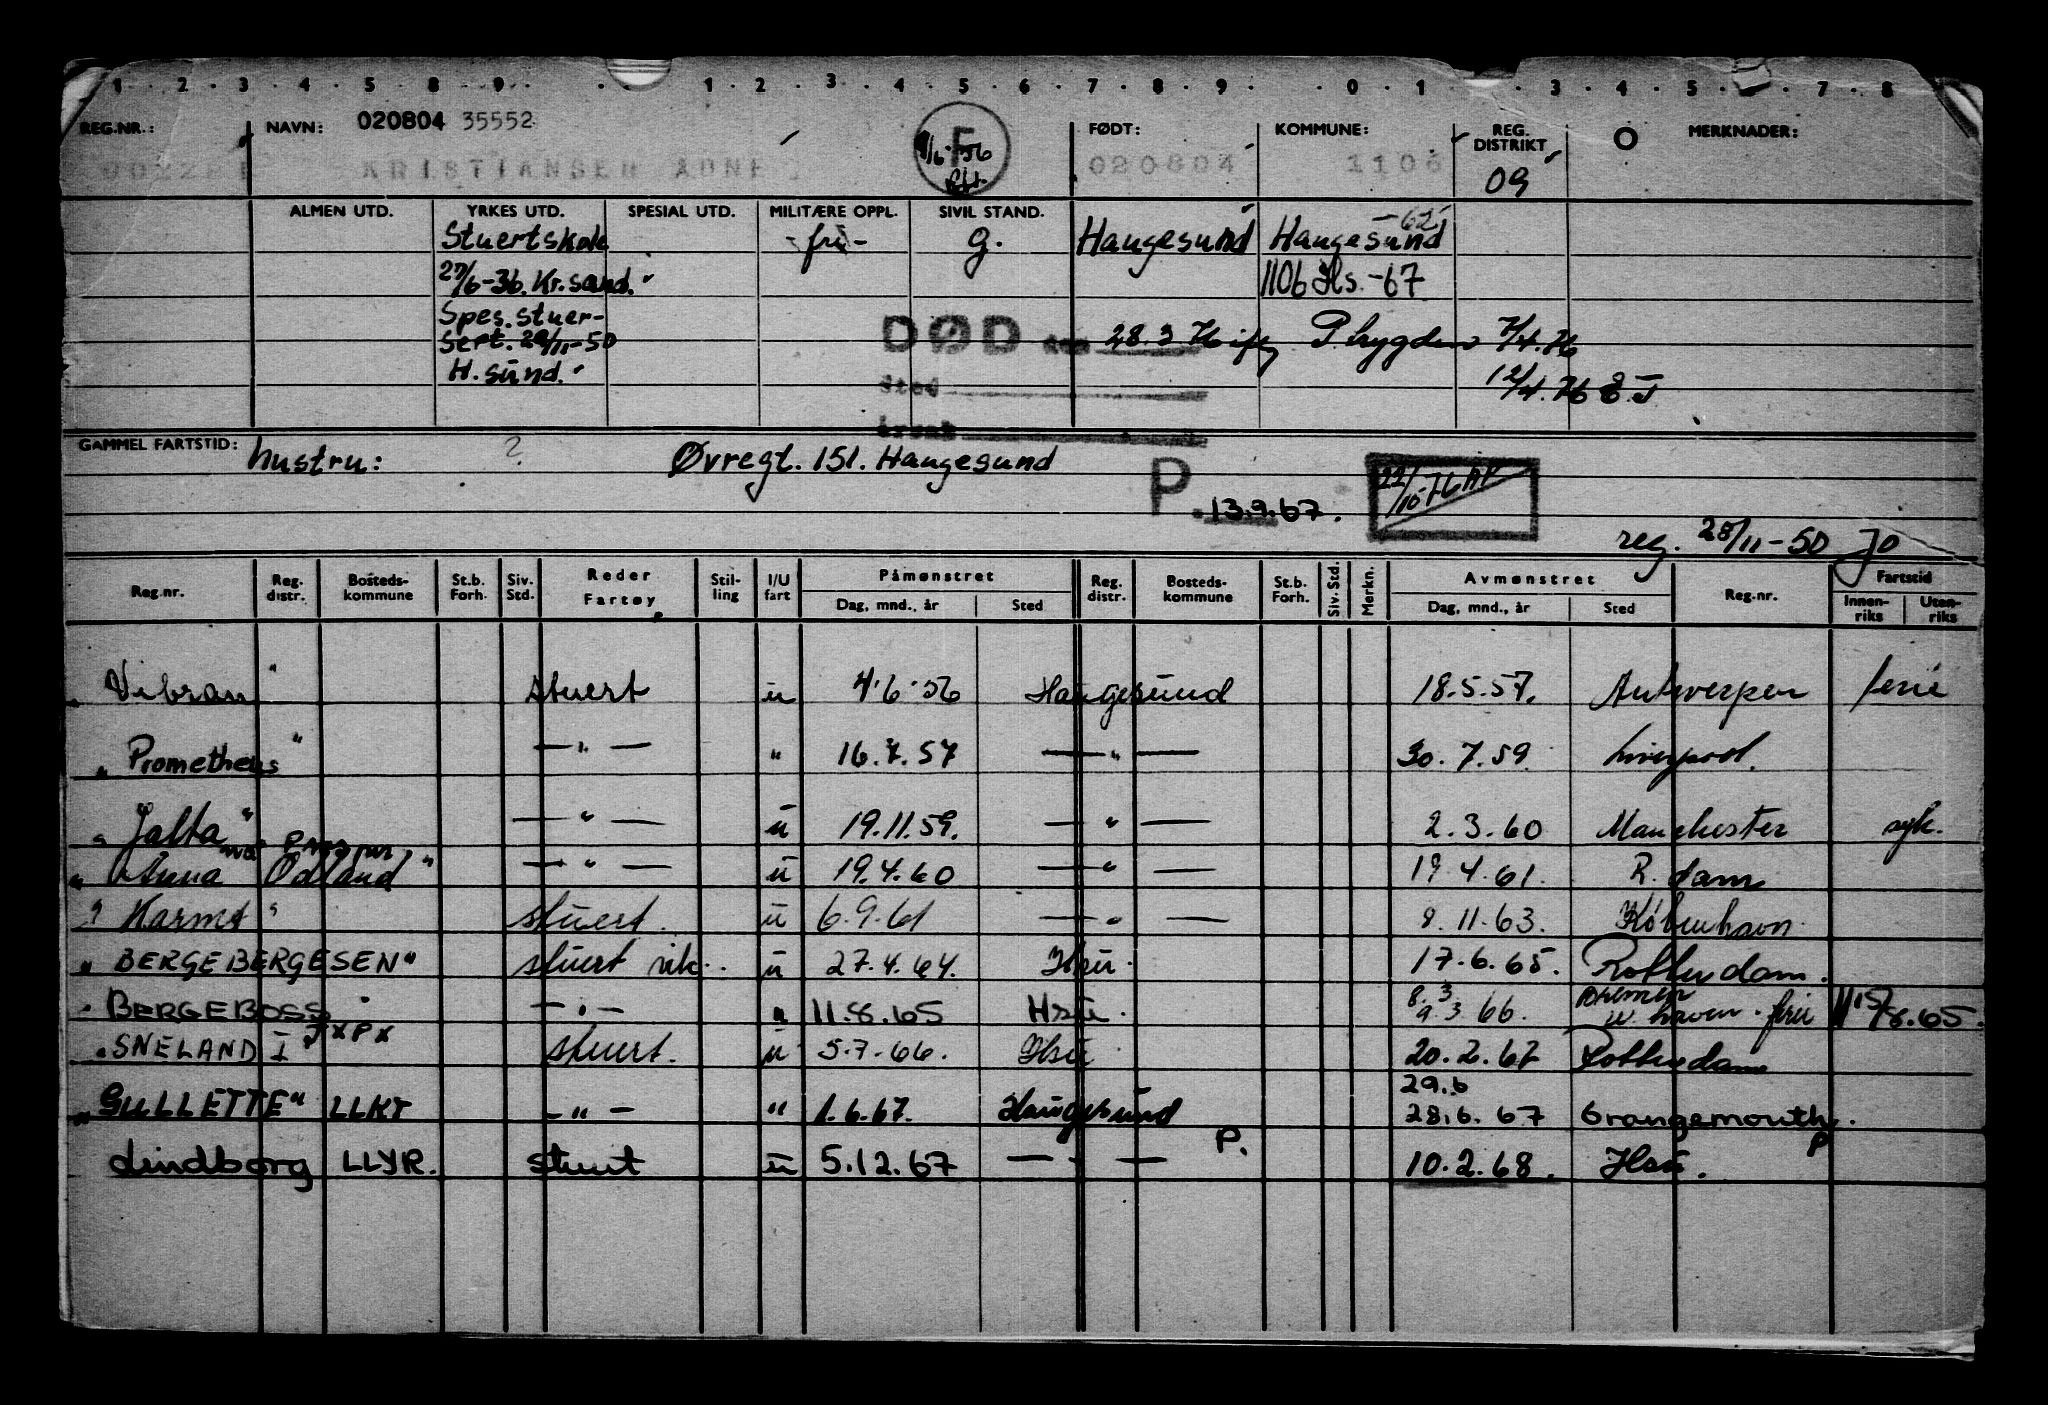 1 2 3 4 5 8 9 1 2 3 4 5 6 7 8 9 0 1 3 4 5 7 8
REG.NR.: NAVN: 020804 35552 F FØDT: KOMMUNE: REG. DISTRIKT MERKNADER:
KRISTIANSEN ADNE 020804 1106 09
ALMEN UTD. YRKES UTD. SPESIAL UTD. MILITÆRE OPPL. SIVIL STAND.
Stuertskole -fri- g. Haugesund Haugesund -62
27/6-36. Kr.sand. 1106 Hs.-67
Spes. stuer-
sert. 28/11-50 DØD 28.3.76 P. 7/4.76
H.sund. Sted 12/4.76
GAMMEL FARTSTID: hustru: ? Øvregt. 151. Haugesund
P. 13.9.67.
reg. 28/11-50 Jo
Reg.nr. Reg. distr. Bosteds- kommune St.b. Forh. Siv. Std. Reder Fartøy Stil- ling I/U fart Påmønstret Dag, mnd., år Sted Reg. distr. Bosteds- kommune St.b. Forh. Siv. Std. Merkn. Avmønstret Dag, mnd., år Sted Reg.nr. Fartstid Innen- riks Uten- riks
„ Vibran " stuert u 4.6.56 Haugesund 18.5.57. Antwerpen ferie
„ Prometheus " — " — " 16.7.57 — " — 30.7.59. Liverpool.
„ Jalta " — " — u 19.11.59. — " — 2.3.60 Manchester syk.
„ Anna Odland " — " — u 19.4.60 — " — 19.4.61. R.dam
" Karmt " stuert. u 6.9.61 — " — 8.11.63. København.
„ BERGE BERGESEN " stuert vik. u 27.4.64. Hsu. 17.6.65. Rotterdam.
" BERGEBOSS " — " — " 11.8.65 Hsu. 9.3.66. Bremer haven. ferie
„ SNELAND I JXPX stuert. u 5.7.66. Hsu 20.2.67 Rotterdam
„ GULLETTE" LLKT — " — " 1.6.67. Haugesund 29.6 28.6.67 Grangemouth.
Lindborg LLYR. stuert u 5.12.67 — " — P. 10.2.68. Hsu. P